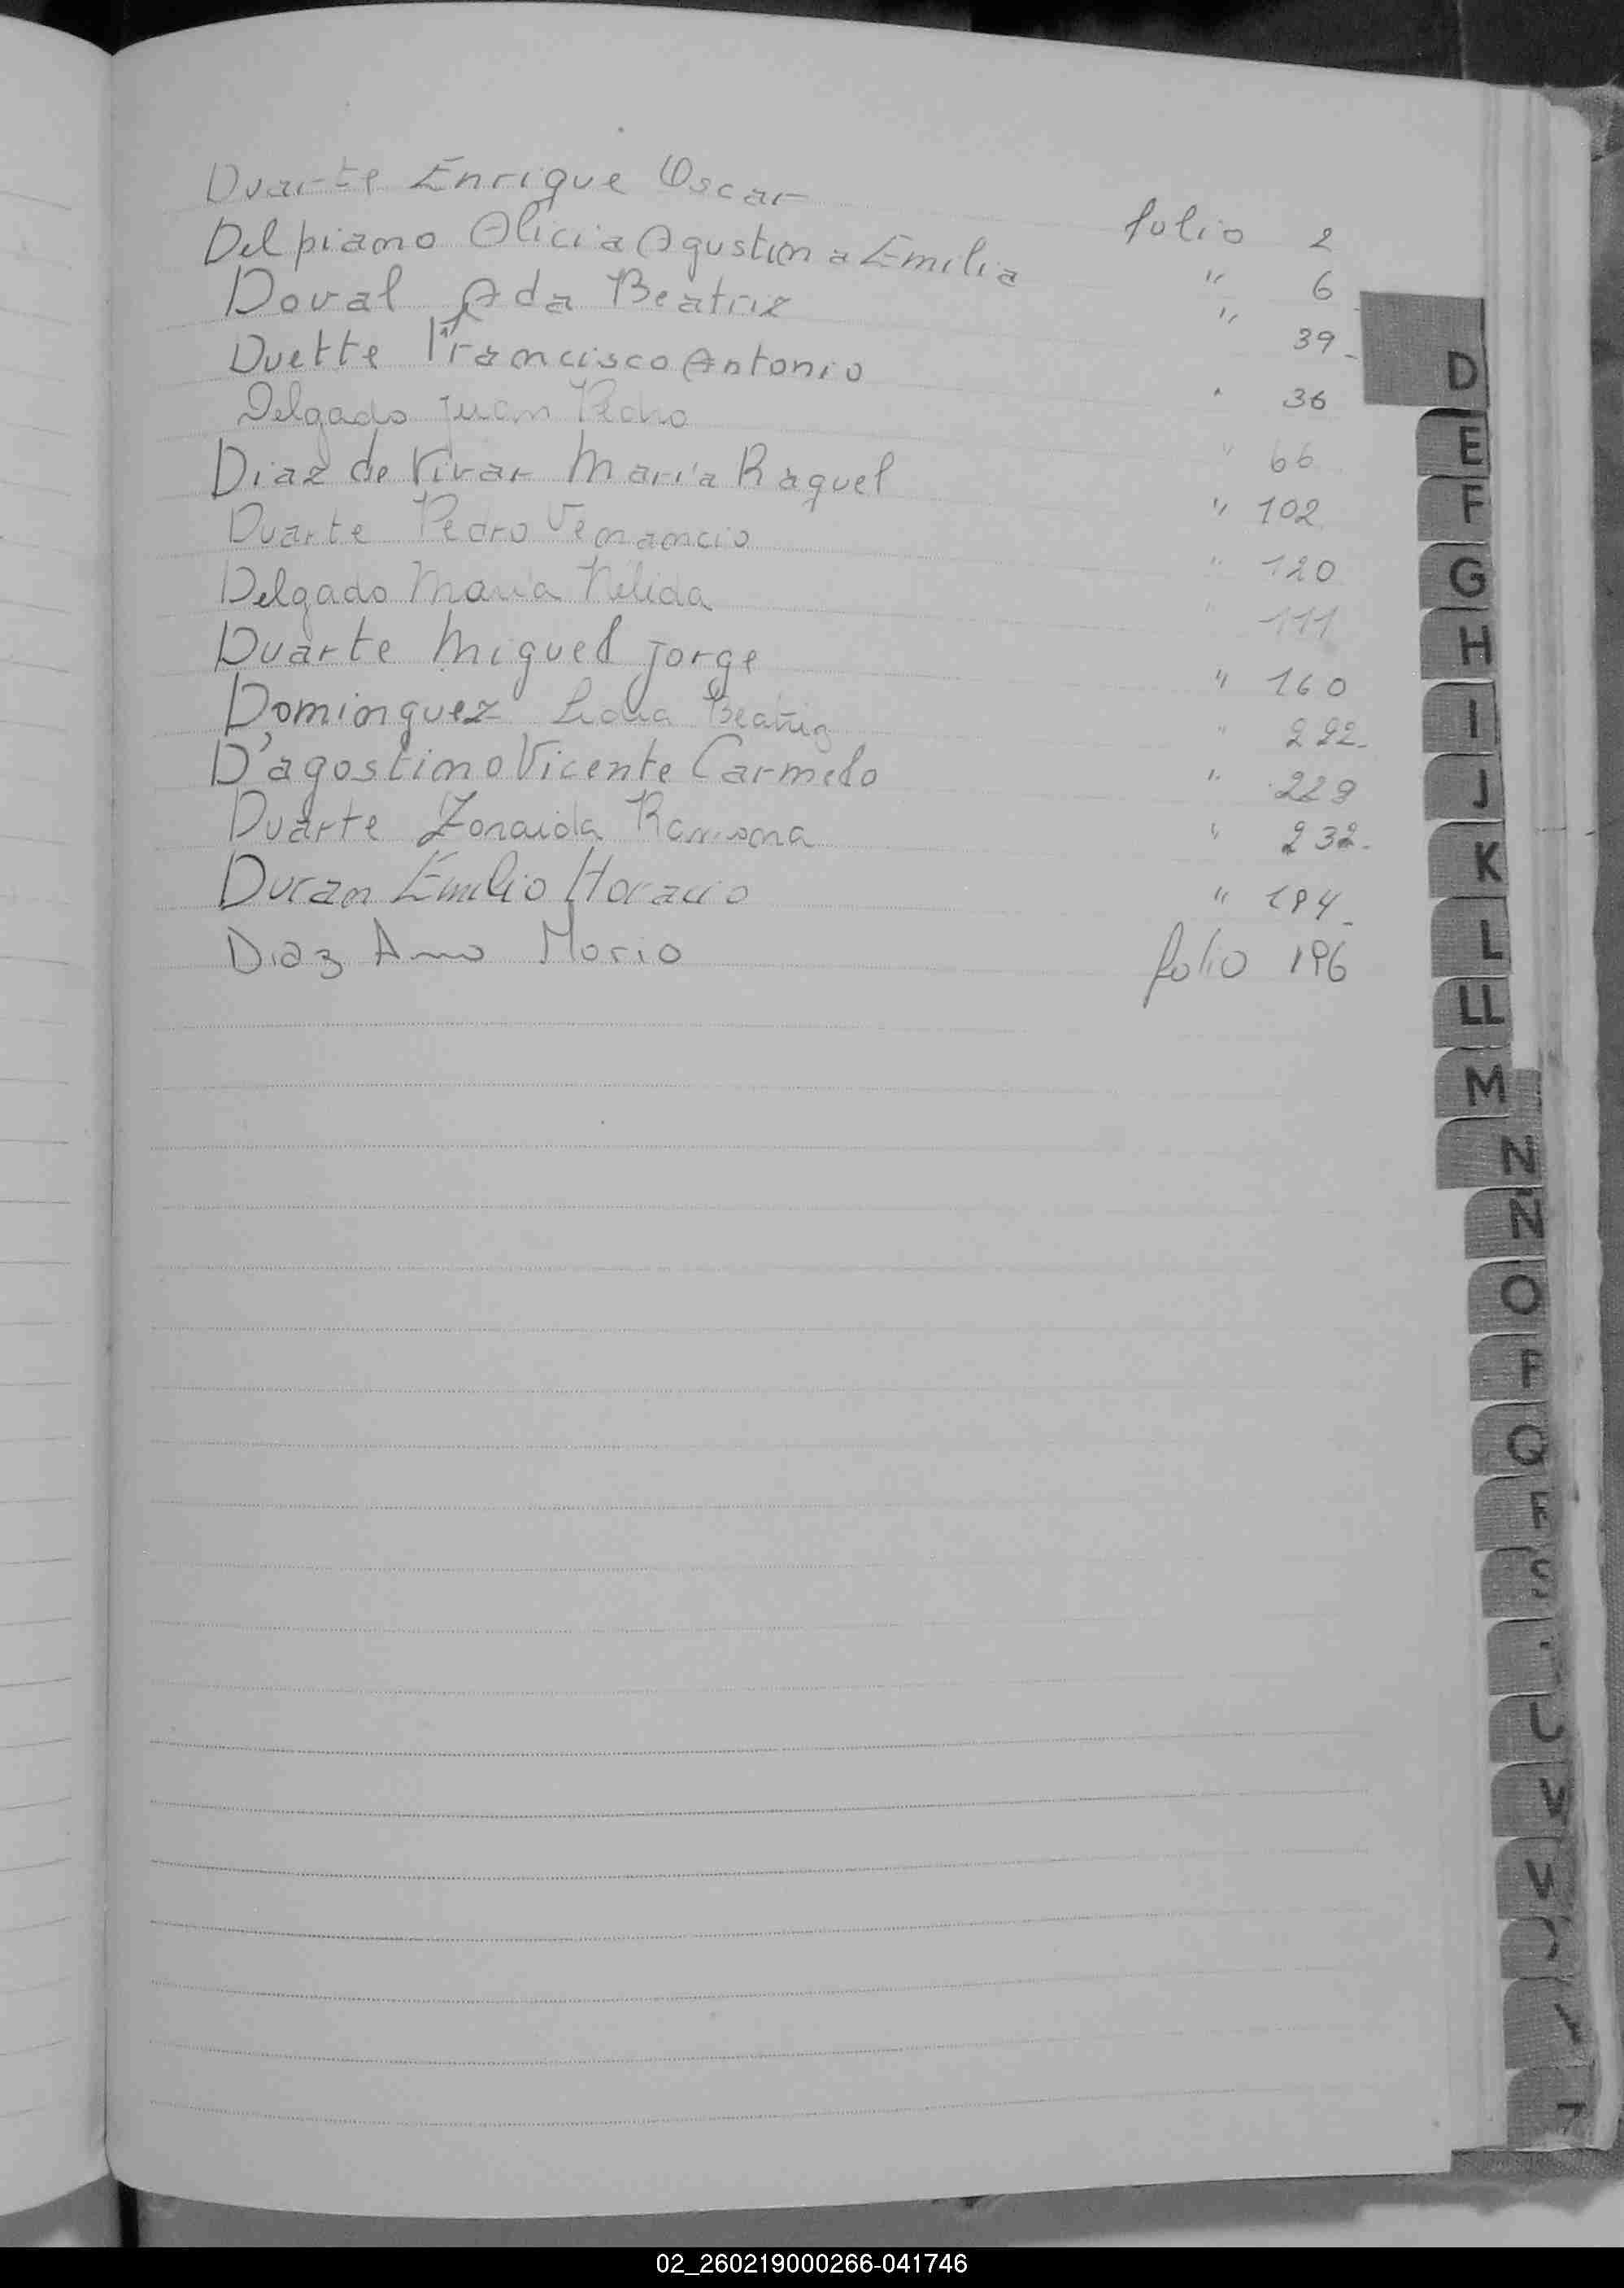 Duarte Enrique Oscar folio 2
Delpiano Alicia Agustina Emilia " 6
Doval Ada Beatriz " 39
Duette Francisco Antonio " 36
Delgado Juan Pedro " 66
Diaz de Vivar María Raquel " 102
Duarte Pedro Venancio " 120
Delgado María Nélida " 111
Duarte Miguel Jorge " 160
Dominguez Lidia Beatriz " 222
D'agostino Vicente Carmelo " 229
Duarte Zoraida Ramona " 232
Duran Emilio Horacio " 194
Diaz Ana Maria folio 196
D
E
F
G
H
I
J
K
L
LL
M
N
Ñ
O
P
Q
R
S
U
V
02_260219000266-041746